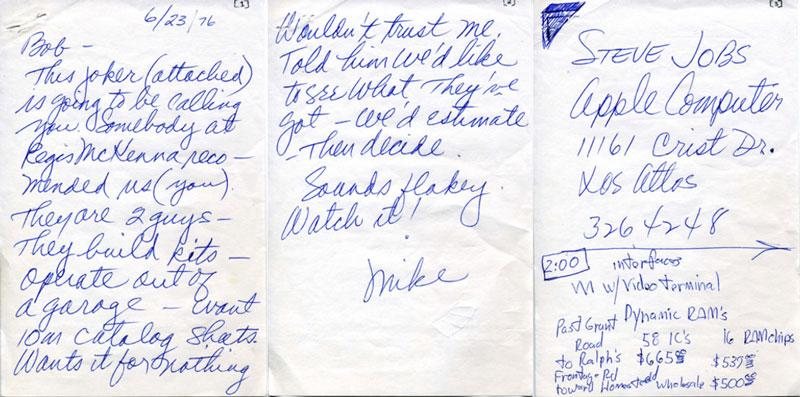 [1]
6/23/76
Bob –
This joker (attached)
is going to be calling
you. Somebody at
Regis McKenna reco –
mended us (you).
They are 2 guys –
They build kits –
operate out of
a garage – want
10m catalog sheets.
Wants it for nothing
[2]
Wouldn't trust me.
Told him we'd like
to see what they've
got – we'd estimate
– Then decide.
Sounds flakey.
Watch it!
Mike
[3]
STEVE JOBS
Apple Computer
11161 Crist Dr.
Los Altos
326 4248
2:00 interfaces
w/video terminal
Dynamic RAM's
Past Grant
Road 58 IC's 16 RAM chips
to Ralph's $665 $537
Frontage Rd
toward Homestead wholesale $500